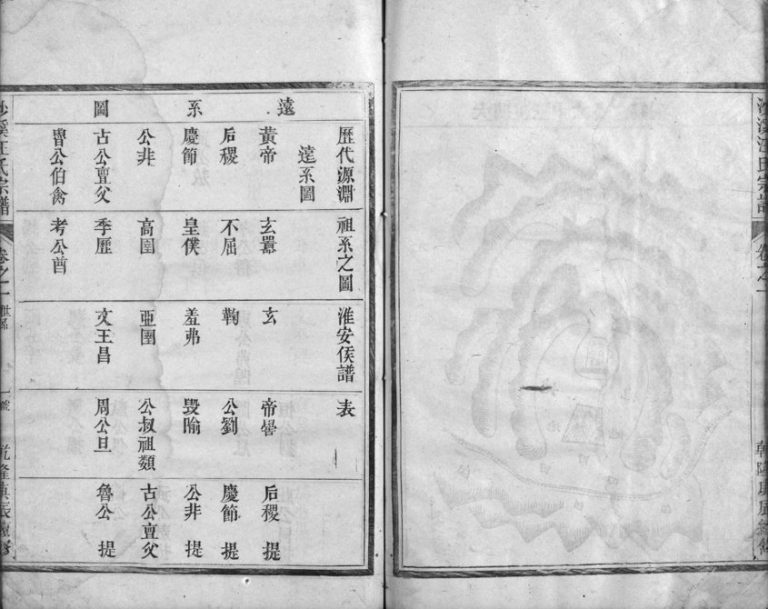 溪汪氏宗譜 卷之一
遠系圖
歷代源淵 祖系之圖 淮安侯譜 表
遠系圖
黃帝 玄囂 玄 帝嚳 后稷 提
后稷 不屈 鞠 公劉 慶節 提
慶節 皇僕 羞弗 毀喻 公非 提
公非 高圉 亞圉 公叔祖類 古公亶父
古公亶父 季歷 文王昌 周公旦 魯公 提
魯公伯禽 考公酋
溪汪氏宗譜 卷之一 世系 一號 乾隆